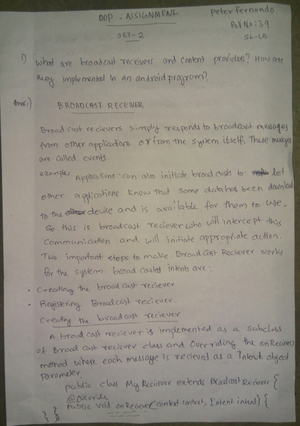 OOP - ASSIGNMENT
Peter Fernando
Roll No: 39
SET-2
SL-LB
1) What are broadcast recievers and content providers? How are
they implemented in an android program?
Ans:)
BROADCAST RECIEVER
Broadcast recievers simply responds to broadcast messages
from other applications or from the system itself. These messages
are called events
example: Applications can also initiate broadcasts to let
other applications know that some data has been download
to the device and is available for them to use.
So this is broadcast reciever who will intercept this
communication and will initiate appropriate action.
Two important steps to make Broadcast Reciever works
for the system broadcasted intents are:-
• Creating the broadcast reciever
• Registering Broadcast reciever.
Creating the broadcast reciever
A broadcast reciever is implemented as a subclass
of Broadcast reciever class and overriding the onRecieve()
method where each message is recieved as a Intent object
parameter.
public class MyReciever extends BroadcastReciever {
@Override
public void onRecieve(context context, Intent intent) {
} }